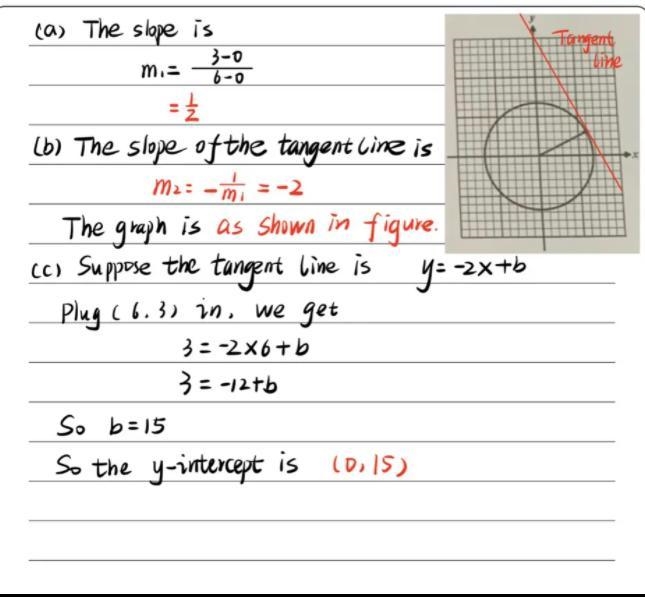 (a) The slope is
m₁ = (3-0)/(6-0)
= 1/2
(b) The slope of the tangent line is
m₂ = -1/m₁ = -2
The graph is as shown in figure.
(c) Suppose the tangent line is y=-2x+b
Plug (6.3) in, we get
3=-2×6+b
3=-12+b
So b=15
So the y-intercept is (0,15)
y
Tangent
line
x